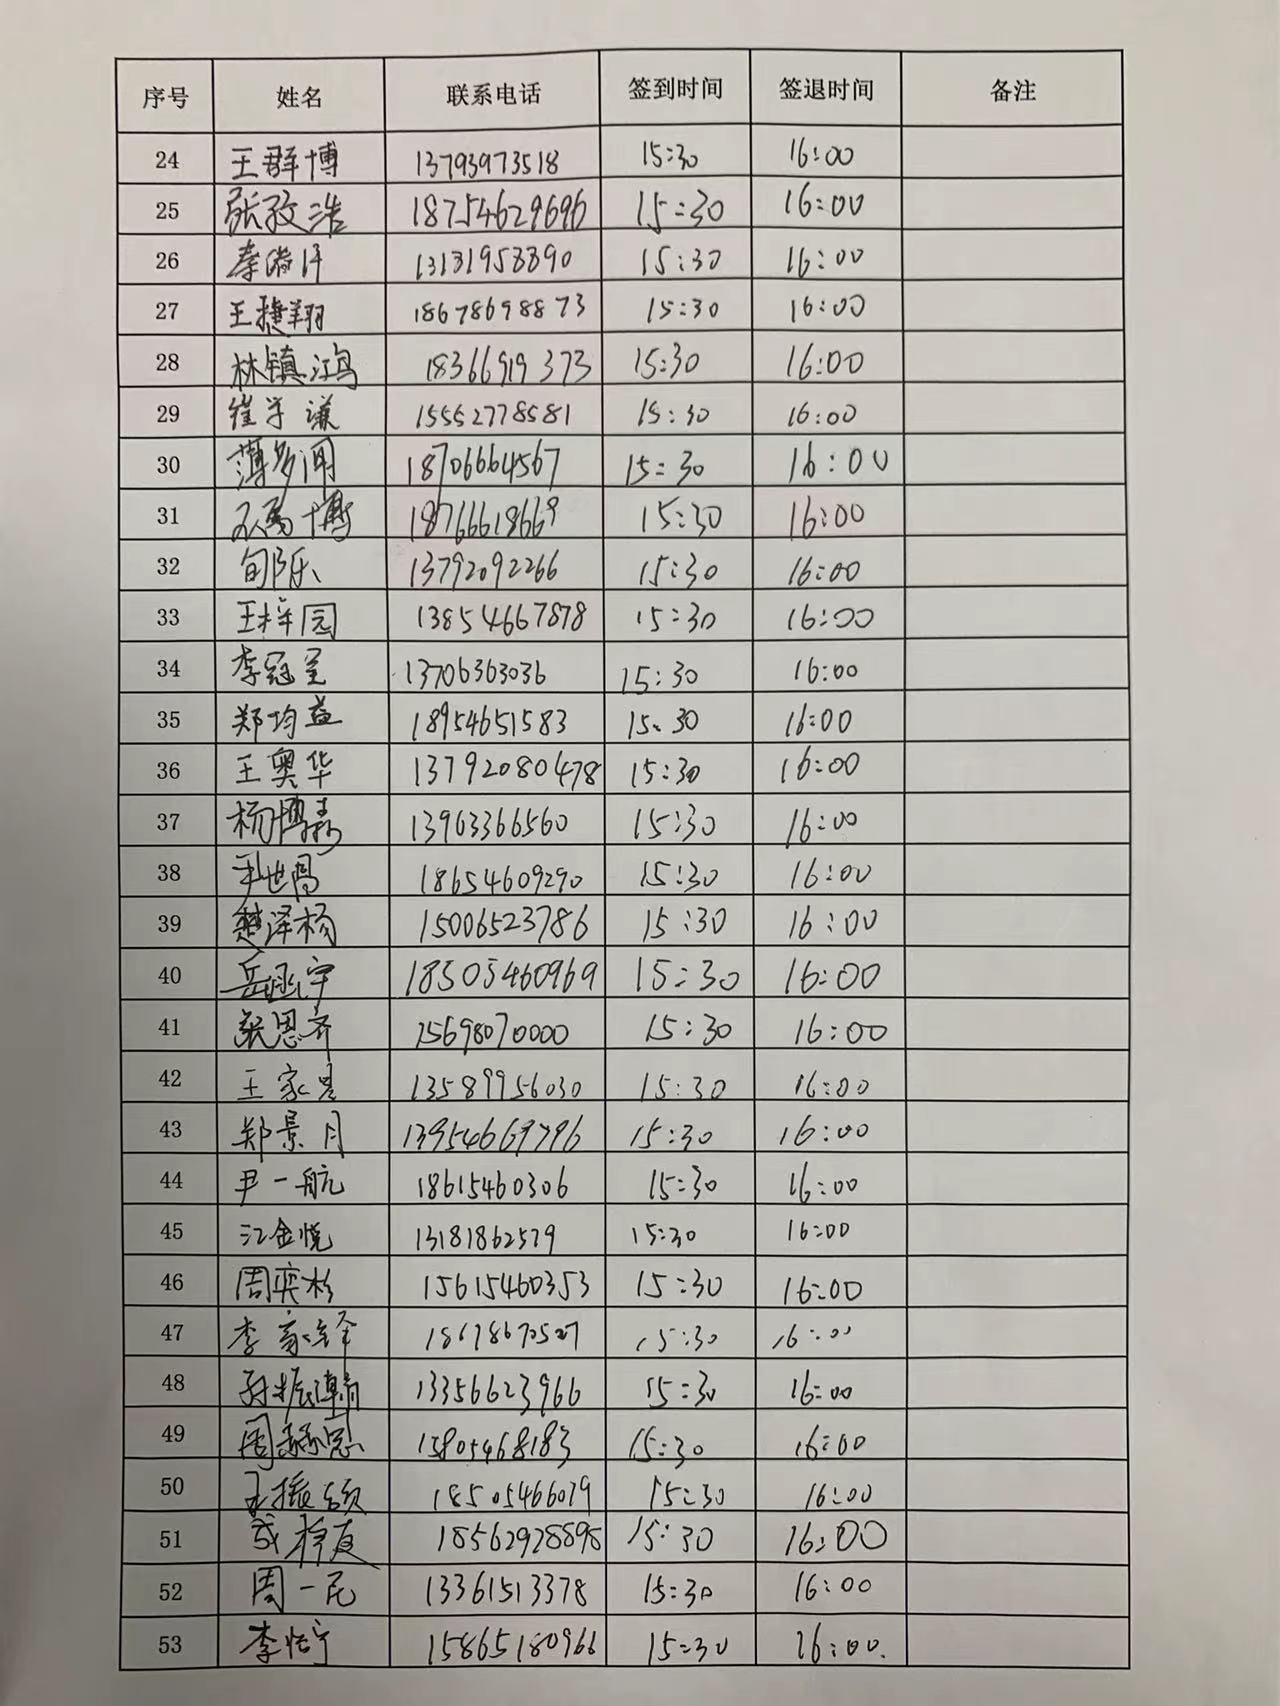 序号 姓名 联系电话 签到时间 签退时间 备注
24 王群博 13793973518 15:30 16:00
25 张孜浩 18754629696 15:30 16:00
26 15:30 16:00
27 王捷翔 18678698873 15:30 16:00
28 林镇鸿 18366919373 15:30 16:00
29 崔学谦 15552778581 15:30 16:00
30 薄多闻 18706664567 15:30 16:00
31 18766618669 15:30 16:00
32 13792092266 15:30 16:00
33 王梓园 13854667878 15:30 16:00
34 李冠呈 13706363036 15:30 16:00
35 郑均益 18954651583 15:30 16:00
36 王奥华 13792080478 15:30 16:00
37 杨博森 13963366560 15:30 16:00
38 18654609290 15:30 16:00
39 楚泽杨 15006523786 15:30 16:00
40 岳函宇 18505460969 15:30 16:00
41 张恩齐 15698070000 15:30 16:00
42 13589956030 15:30 16:00
43 郑景月 13954669796 15:30 16:00
44 尹一航 18615460306 15:30 16:00
45 江金悦 13181862579 15:30 16:00
46 周奕杉 15615460353 15:30 16:00
47 李家 15:30 16:00
48 13356623966 15:30 16:00
49 15805468183 15:30 16:00
50 王振硕 18505466079 15:30 16:00
51 18562928898 15:30 16:00
52 周一民 13361513378 15:30 16:00
53 李怡宁 15865180966 15:30 16:00